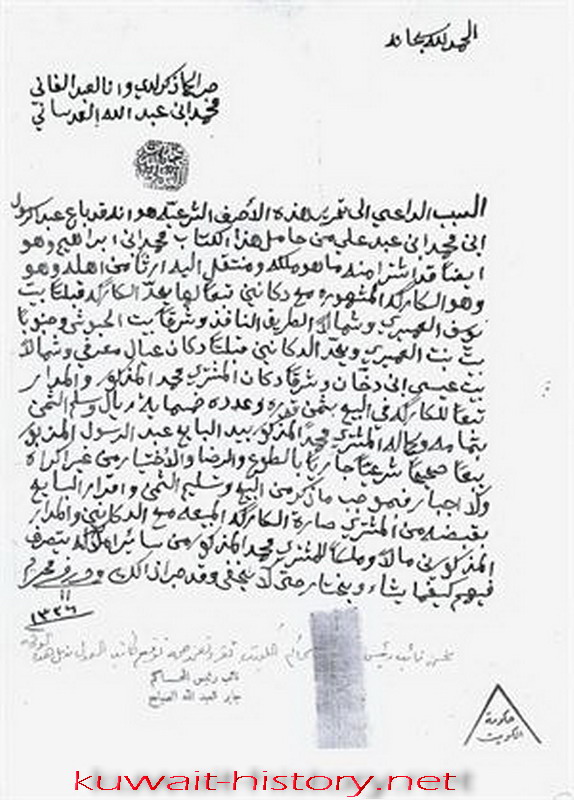 الحمد لله سبحانه
صح الحكم بما ذكر لدي وانا العبد الفاني
محمد ابن عبد الله العدساني
السبب الداعي الى تحرير هذه الأحرف الشرعية هو انه قد باع عبد الرسول
ابن محمد ابن عبد علي من حامل هذا الكتاب محمد ابن ابراهيم وهو
ايضا قد اشترا منه ما هو ملكه ومنتقل اليه ارثا من اهله وهو
وهو الكاركه المشهوره مع دكانين تبعا لها يحد الكاركه قبلتا بيت
يوسف العميري وشمالا الطريق النافذ وشرقا بيت الحوشي وجنوبا
بيت بنت العميري ويحد الدكانين قبلتا دكان عيال معرفي وشمالا
بيت عيسى ابن دهقان وشرقا دكان المشتري محمد المذكور والمدار
تبعا للكاركه في البيع بثمن قدره وعدده ريال وسلم الثمن
بتمامه وكماله المشتري محمد المذكور بيد البايع عبد الرسول المذكور
بيعا صحيحا شرعيا جاريا بالطوع والرضا والأختيار من غير اكراه
ولا اجبار فبموجب ما ذكر من البيع وتسليم الثمن واقرار البايع
بقبضه من المشتري صارة الكاركه المبيعه مع الدكانين والمدار
المذكورين مالا وملكا للمشتري محمد المذكور من ساير املاكه يتصرف
فيهم كيفما يشاء ويختار حتى لا يخفى وقد جرا ذالك محرم
١١
١٣٢٦
نحن نائب رئيس
نائب رئيس المحاكم
جابر العبد الله الصباح
حكومة
الكويت
kuwait-history.net